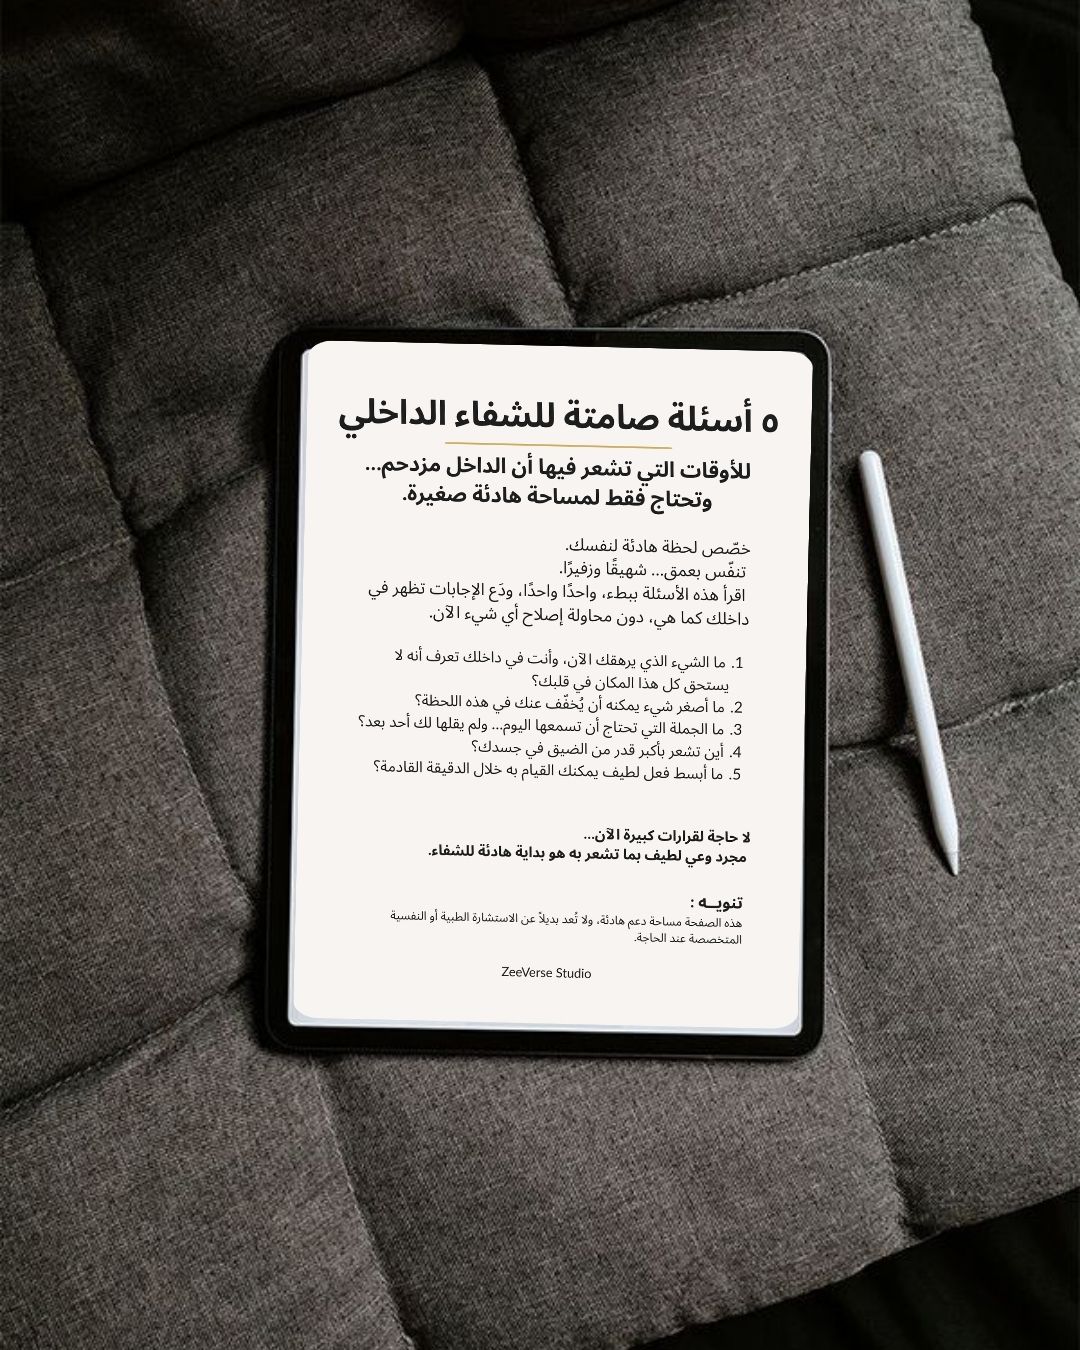 ٥ أسئلة صامتة للشفاء الداخلي
للأوقات التي تشعر فيها أن الداخل مزدحم...
وتحتاج فقط لمساحة هادئة صغيرة.
خصّص لحظة هادئة لنفسك.
تنفّس بعمق... شهيقًا وزفيرًا.
اقرأ هذه الأسئلة ببطء، واحدًا واحدًا، ودَع الإجابات تظهر في
داخلك كما هي، دون محاولة إصلاح أي شيء الآن.
1. ما الشيء الذي يرهقك الآن، وأنت في داخلك تعرف أنه لا
يستحق كل هذا المكان في قلبك؟
2. ما أصغر شيء يمكنه أن يُخفّف عنك في هذه اللحظة؟
3. ما الجملة التي تحتاج أن تسمعها اليوم... ولم يقلها لك أحد بعد؟
4. أين تشعر بأكبر قدر من الضيق في جسدك؟
5. ما أبسط فعل لطيف يمكنك القيام به خلال الدقيقة القادمة؟
لا حاجة لقرارات كبيرة الآن...
مجرد وعي لطيف بما تشعر به هو بداية هادئة للشفاء.
تنويــه :
هذه الصفحة مساحة دعم هادئة، ولا تُعد بديلاً عن الاستشارة الطبية أو النفسية
المتخصصة عند الحاجة.
ZeeVerse Studio